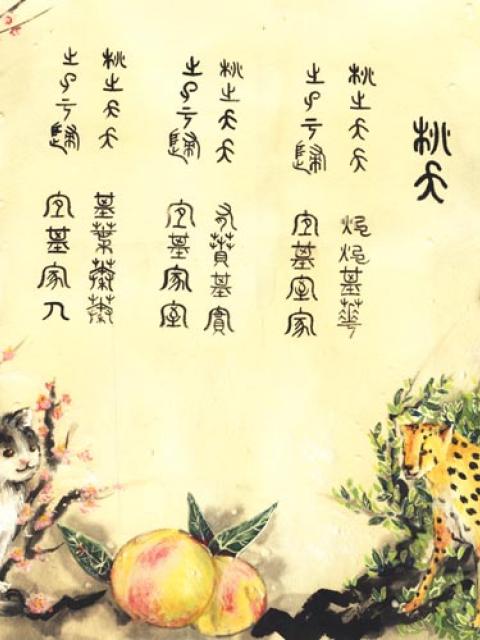 桃夭
桃之夭夭 灼灼其華
之子于歸 宜其室家
桃之夭夭 有蕡其實
之子于歸 宜其家室
桃之夭夭 其葉蓁蓁
之子于歸 宜其家人